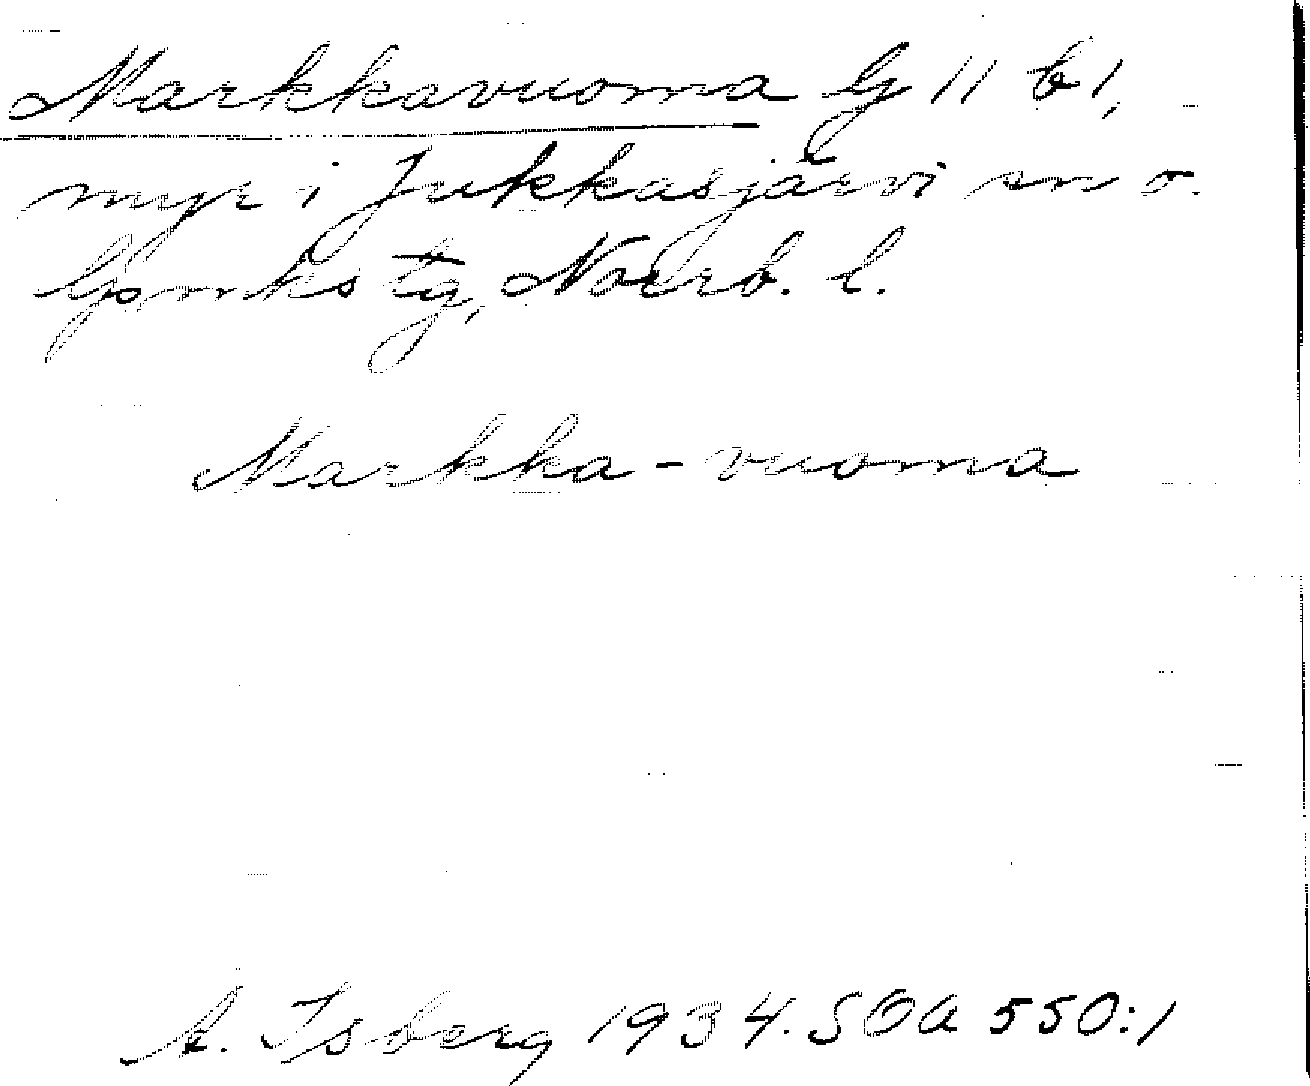 Markkavuoma G 11 b 1,
myr i Jukkasjärvi sn o.
lpmks tg, Norrb. l.
Markka-vuoma
A. Isberg 1934. SOA 550:1